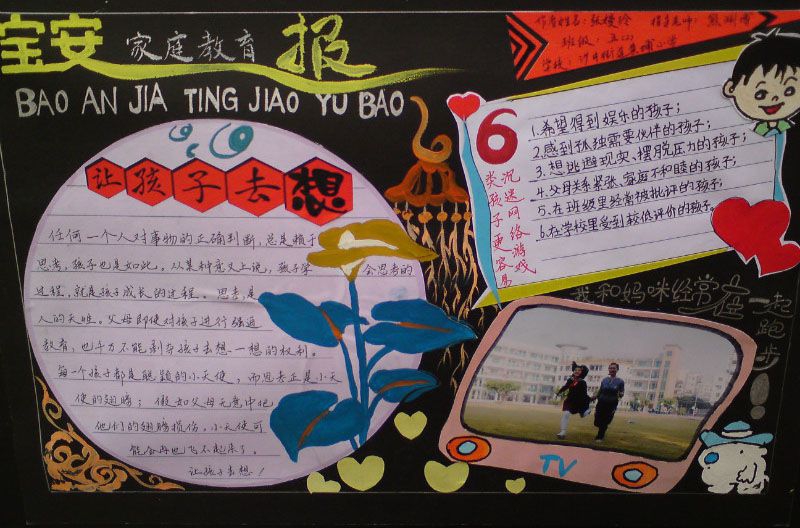 宝安家庭教育报
BAO AN JIA TING JIAO YU BAO
班级：五(2)
让孩子去想
任何一个人对事物的正确判断，总是赖于
思考，孩子也是如此。从某种意义上说，孩子学会思考的
过程，就是孩子成长的过程。思考是
人的天性。父母即使对孩子进行强迫
教育，也千万不能剥夺孩子去想一想的权利。
每一个孩子都是聪颖的小天使，而思考正是小天
使的翅膀；假如父母无意中把
他们的翅膀损伤，小天使可
能会再也飞不起来了。
让孩子去想！
6
类孩子更容易
沉迷网络游戏
1.希望得到娱乐的孩子；
2.感到孤独需要伙伴的孩子；
3.想逃避现实、摆脱压力的孩子；
4.父母关系紧张、家庭不和睦的孩子；
5.在班级里经常被批评的孩子；
6.在学校里受到较低评价的孩子。
我和妈咪经常在一起
跑步！
TV